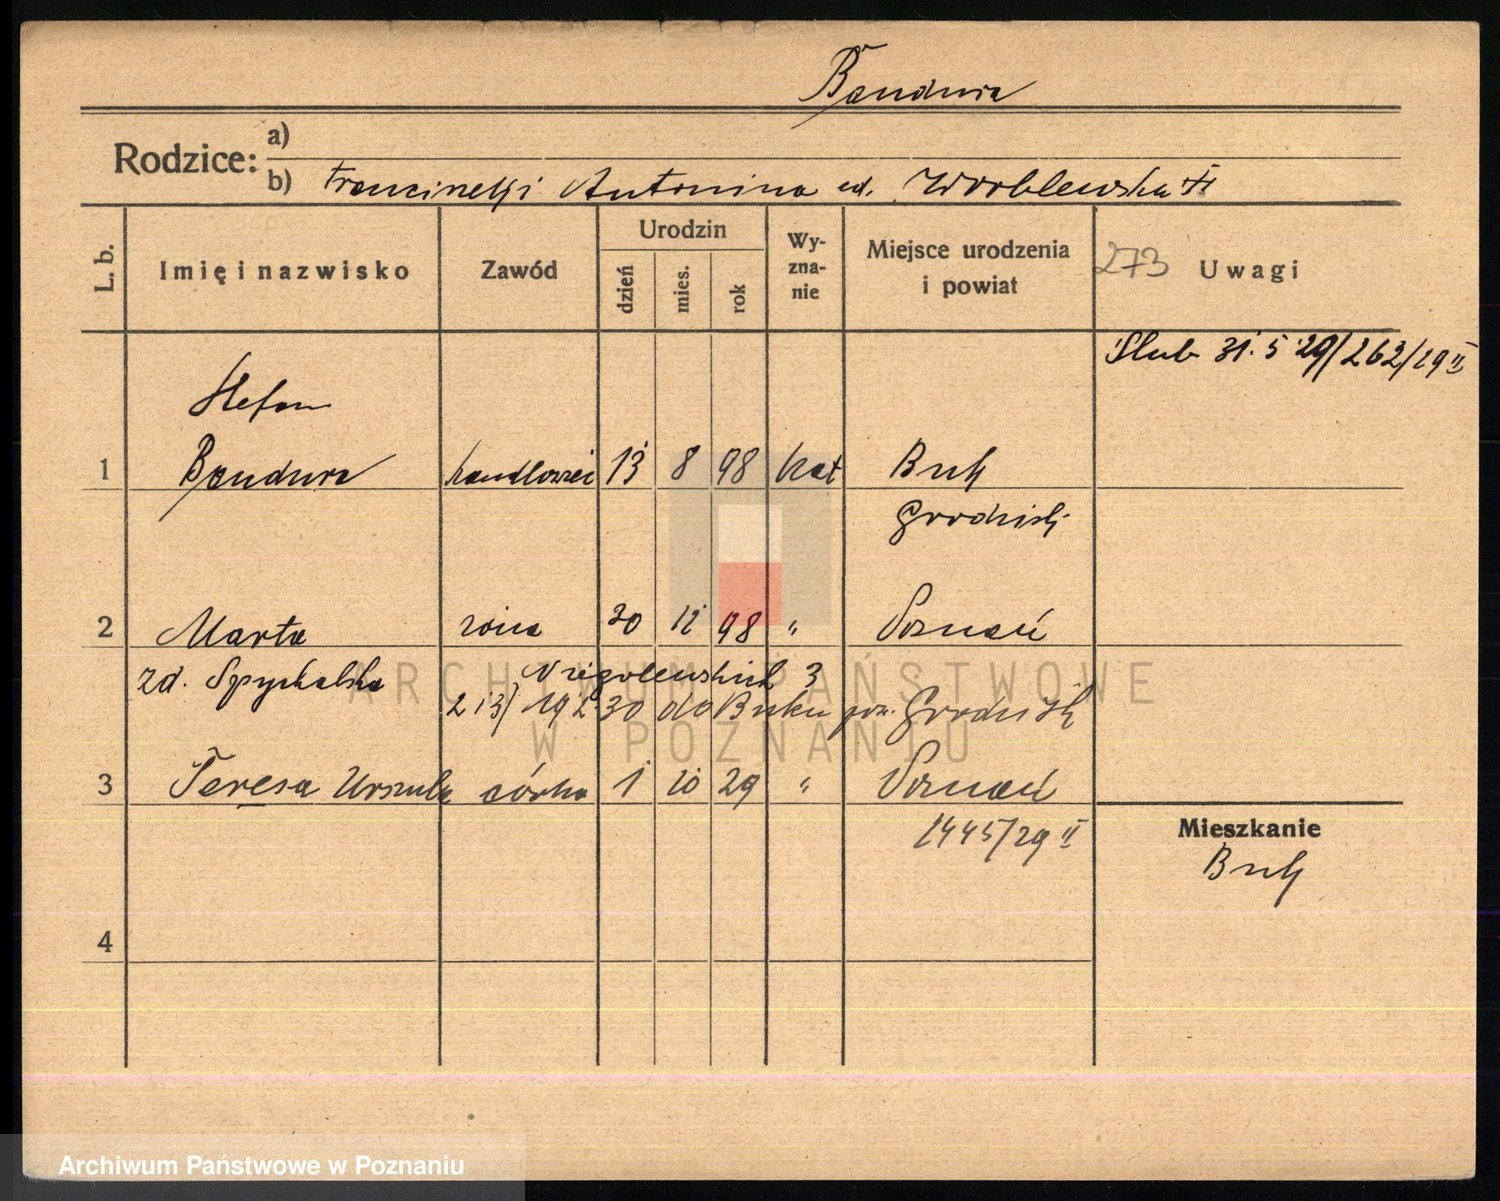 Bandura
Rodzice:
a)
b) Franciszek i Antonina zd. Wróblewska
L. b.
Imię i nazwisko
Zawód
Urodzin
dzień
mies.
rok
Wy-
zna-
nie
Miejsce urodzenia
i powiat
273
Uwagi
Ślub 31.5 29/262/29 II
Stefan
1 Bandura handlowiec 13 8 98 kat Buk
Grodzisk
2 Marta żona 30 12 98 " Poznań
zd. Spychalska Niegolewskich 3
2 i 3) 19 2 30 do Buku pow. Grodzisk
3 Teresa Urszula córka 1 10 29 " Poznań
1445/29 II
Mieszkanie
Buk
4
ARCHIWUM PAŃSTWOWE
W POZNANIU
Archiwum Państwowe w Poznaniu